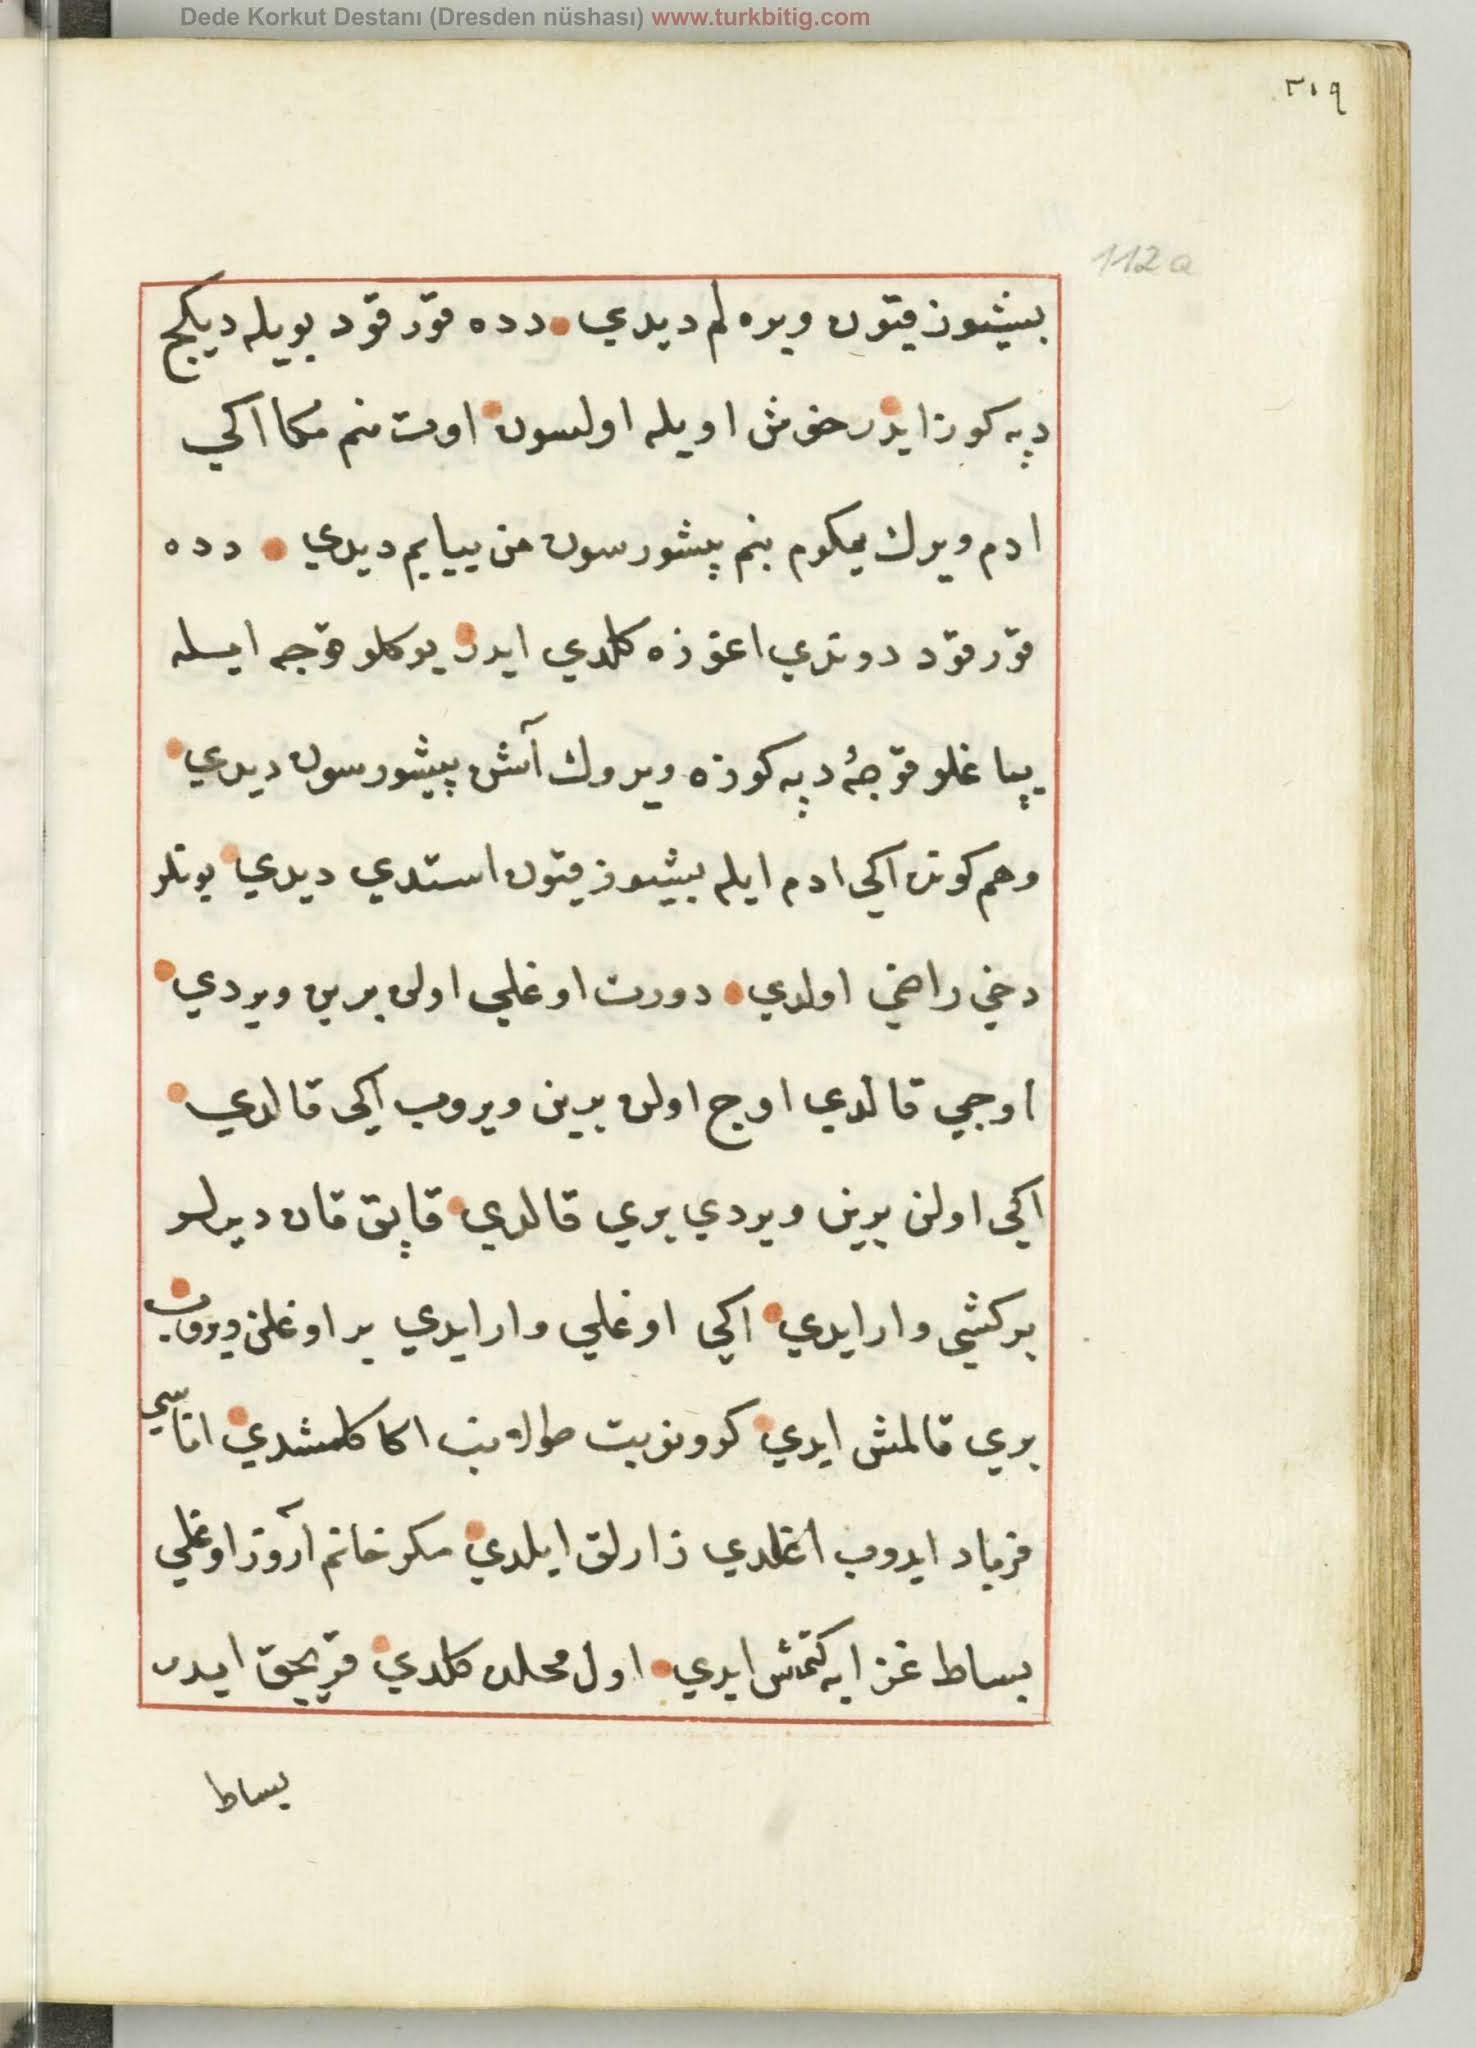 Dede Korkut Destanı (Dresden nüshası) www.turkbitig.com
٣١٩
112a
بیشیوز قیون ویره لم دیدي دده قورقود بویله دیكج
دپه كوز ایدر خوش اویله اولسون اوت منم مكا اكي
ادم ویرك یمكوم بنم پیشورسون من ییایم دیدي دده
قورقود دوندي اغوزه كلدي ایدر یوكلو قوجه ایسله
یپاغلو قوجۀ دپه كوزه ویروك آش پیشورسون دیدي
وهم كونن اكي ادم ایله بیشیوز قیون استدي دیدي بونلر
دخي راضي اولدي دورت اوغلي اولن برین ویردي
اوجي قالدي اوج اولن برین ویروب اكي قالدي
اكي اولن برین ویردي بري قالدي قاپق قان دیرلر
بر كشي وارایدي اكي اوغلي وارایدي بر اوغلن ویروب
بري قالمش ایدي كوونوبت طولانب اكا كلمشدي اناسي
فریاد ایدوب اغلدي زارلق ایلدي مكر خانم اروز اوغلي
بساط غزایه كتمش ایدي اول محلده كلدي قریجق ایدر
بساط